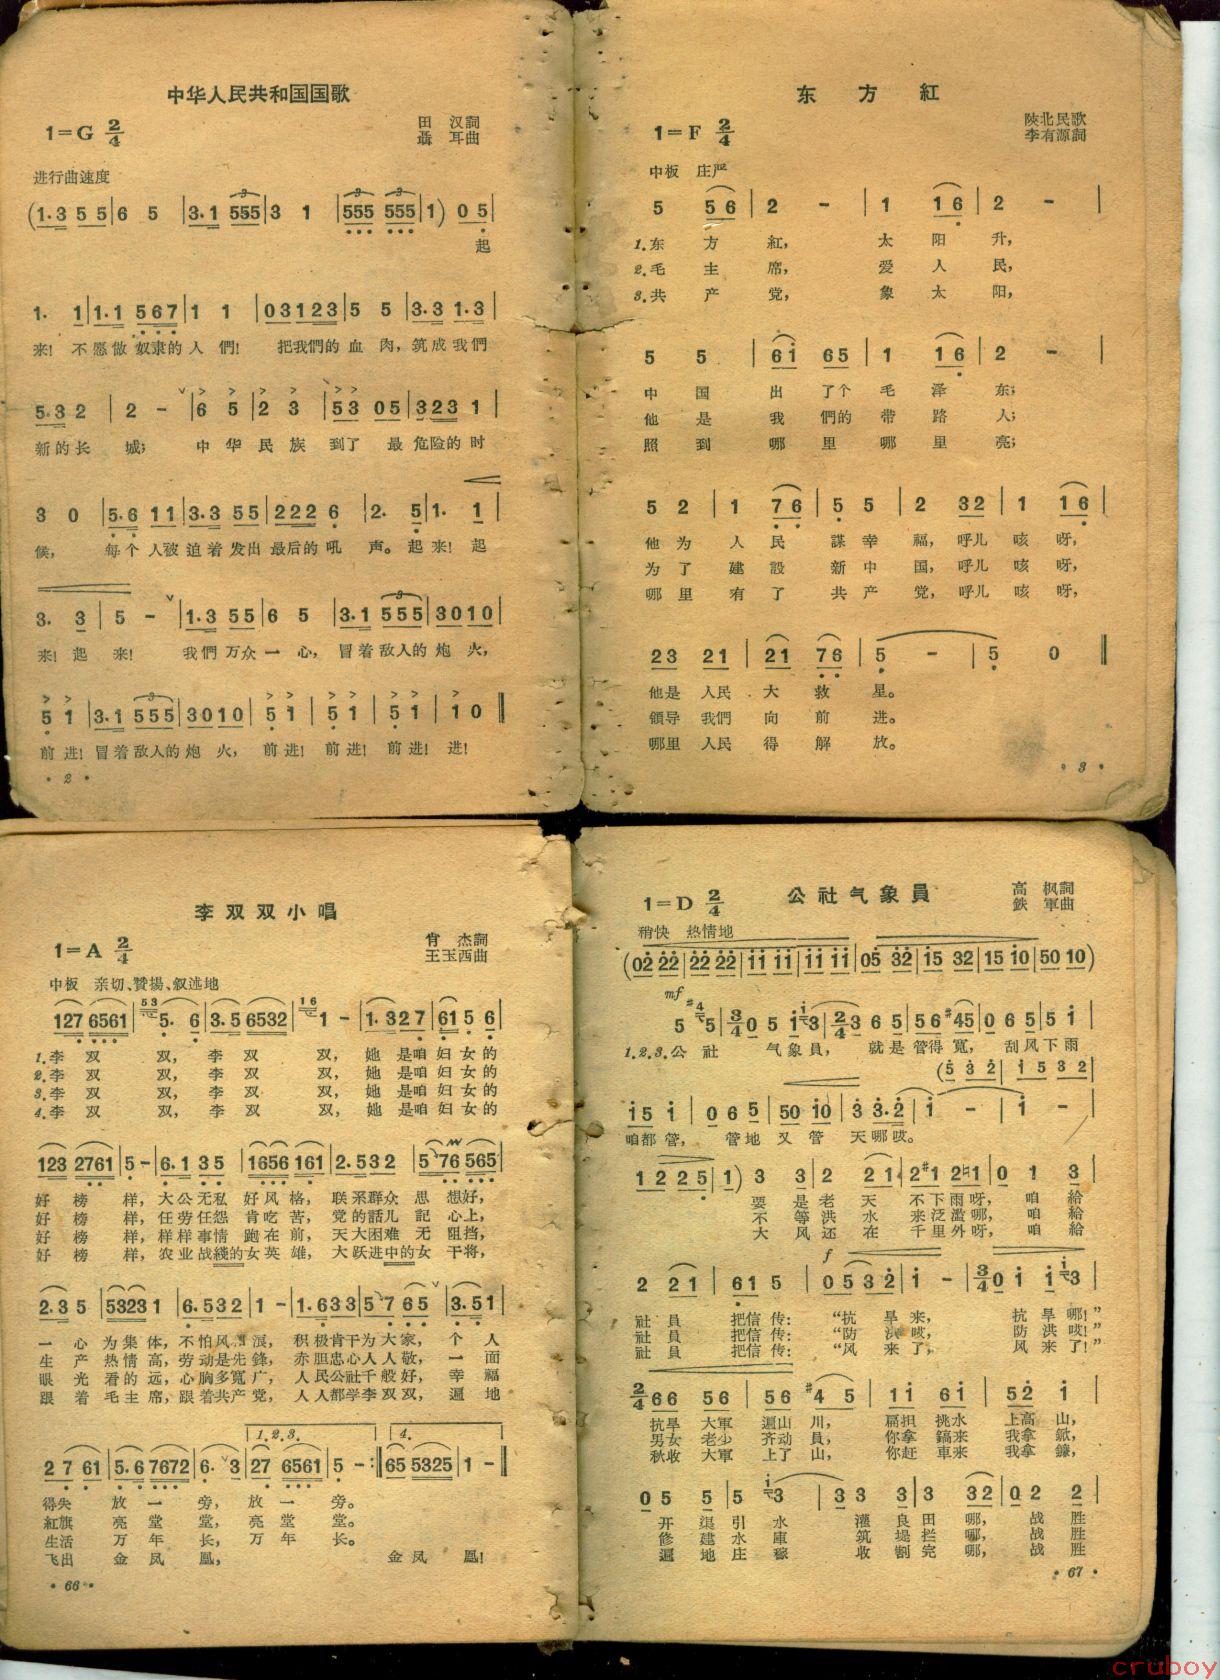 中华人民共和国国歌
1=G 2/4
田 汉詞
聶 耳曲
进行曲速度
(1·3 5 5|6 5|3·1 555|3 1|555 555|1) 0 5|
起
1· 1|1·1 567|1 1|03123|5 5|3·3 1·3|
来! 不愿做 奴隶的 人 們! 把我們的 血 肉, 筑成我們
5·3 2|2 -|6 5|2 3|53 05|323 1|
新的长 城; 中 华 民 族 到了 最 危险的 时
3 0|5·6 11|3·3 55|222 6|2· 5|1· 1|
候, 每个 人被 迫着 发出 最后的 吼 声。起 来! 起
3· 3|5 -|1·3 55|6 5|3·1 555|3010|
来! 起 来! 我們 万众 一 心, 冒着 敌人的 炮 火,
5 1|3·1 555|3010|5 1|5 1|5 1|1 0‖
前 进! 冒着 敌人的 炮 火, 前进! 前进! 前进! 进!
· 2 ·
东 方 紅
1=F 2/4
陝北民歌
李有源詞
中板 庄严
5 56|2 -|1 16|2 -|
1.东 方 紅, 太 阳 升,
2.毛 主 席, 爱 人 民,
3.共 产 党, 象 太 阳,
5 5|6i 65|1 16|2 -|
中 国 出 了个 毛 泽 东;
他 是 我 們的 带 路 人;
照 到 哪 里 哪 里 亮;
5 2|1 76|5 5|2 32|1 16|
他 为 人 民 謀 幸 福, 呼儿 咳 呀,
为 了 建 設 新 中 国, 呼儿 咳 呀,
哪 里 有 了 共 产 党, 呼儿 咳 呀,
23 21|21 76|5 -|5 0‖
他是 人民 大 救 星。
領导 我們 向 前 进。
哪里 人民 得 解 放。
· 3 ·
李 双 双 小 唱
1=A 2/4
肖 杰詞
王玉西曲
中板 亲切、贊揚、叙述地
127 6561|53 5· 6|3·5 6532|16 1 -|1·327|61 5 6|
1.李 双 双, 李 双 双, 她 是咱 妇 女 的
2.李 双 双, 李 双 双, 她 是咱 妇 女 的
3.李 双 双, 李 双 双, 她 是咱 妇 女 的
4.李 双 双, 李 双 双, 她 是咱 妇 女 的
123 2761|5 -|6·1 35|1656 161|2·532|5 76 565|
好 榜 样, 大公无私 好风格, 联系群众 思 想好,
好 榜 样, 任劳任怨 肯吃苦, 党的話儿 記 心上,
好 榜 样, 样样事情 跑在前, 天大困难 无 阻挡,
好 榜 样, 农业战綫的 女英雄, 大跃进中的女 干将,
2·35|53231|6·532|1 -|1·633|5 7 65|3·51|
一 心 为集体, 不怕风 浪, 积极肯干为大家, 个 人
生 产 热情高, 劳动是先鋒, 赤胆忠心人人敬, 一 面
眼 光 看的远, 心胸多寬广, 人民公社千般好, 幸 福
跟 着 毛主席, 跟着共产党, 人人都学李双双, 遍 地
1.2.3. 4.
2 7 61|5·6 7672|6· 3|27 6561|5 -:‖65 5325|1 -‖
得失 放 一 旁, 放 一 旁。
紅旗 亮 堂 堂, 亮 堂 堂。
生活 万 年 长, 万 年 长。
飞出 金 凤 凰, 金 凤 凰!
· 66 ·
公社气象員
1=D 2/4
高 枫詞
鉄 軍曲
稍快 热情地
(02 22|22 22|ii ii|ii ii|05 32|i5 32|15 i0|50 i0)
mf
5 #4 5|3/4 0 5 i i 3|2/4 3 6 5|56 #45|0 6 5|5 i
1.2.3.公 社 气象員, 就是 管得 寬, 刮风下雨
(5 3 2|i 5 3 2|
i5 i|0 6 5|50 i0|3 3·2|i -|i -|
咱都管, 管地 又管 天哪咹。
1 2 2 5|1) 3 3|2 2 1|2 #1 2 1|0 1 3|
要 是 老 天 不下雨呀, 咱 給
不 等 洪 水 来泛滥哪, 咱 給
大 风 还 在 千里外呀, 咱 給
f
2 21|61 5|0 5 3 2|i -|3/4 0 i i i 3|
社 員 把信传: “抗 旱来, 抗 旱哪!”
社 員 把信传: “防 洪咹, 防 洪咹!”
社 員 把信传: “风 来了, 风 来了!”
2/4 66 56|56 #4 5|1i 6i|52 i|
抗旱 大軍 遍山 川, 扁担 挑水 上高山,
男女 老少 齐动 員, 你拿 鎬来 我拿 鍁,
秋收 大軍 上了 山, 你赶 車来 我拿 鐮,
0 5 5|5 i 3|3 3 3|3 32|0 2 2|
开 渠 引 水 灌 良 田 哪, 战 胜
修 建 水 庫 筑 堤 拦 哪, 战 胜
遍 地 庄 稼 收 割 完 哪, 战 胜
· 67 ·
cruboy